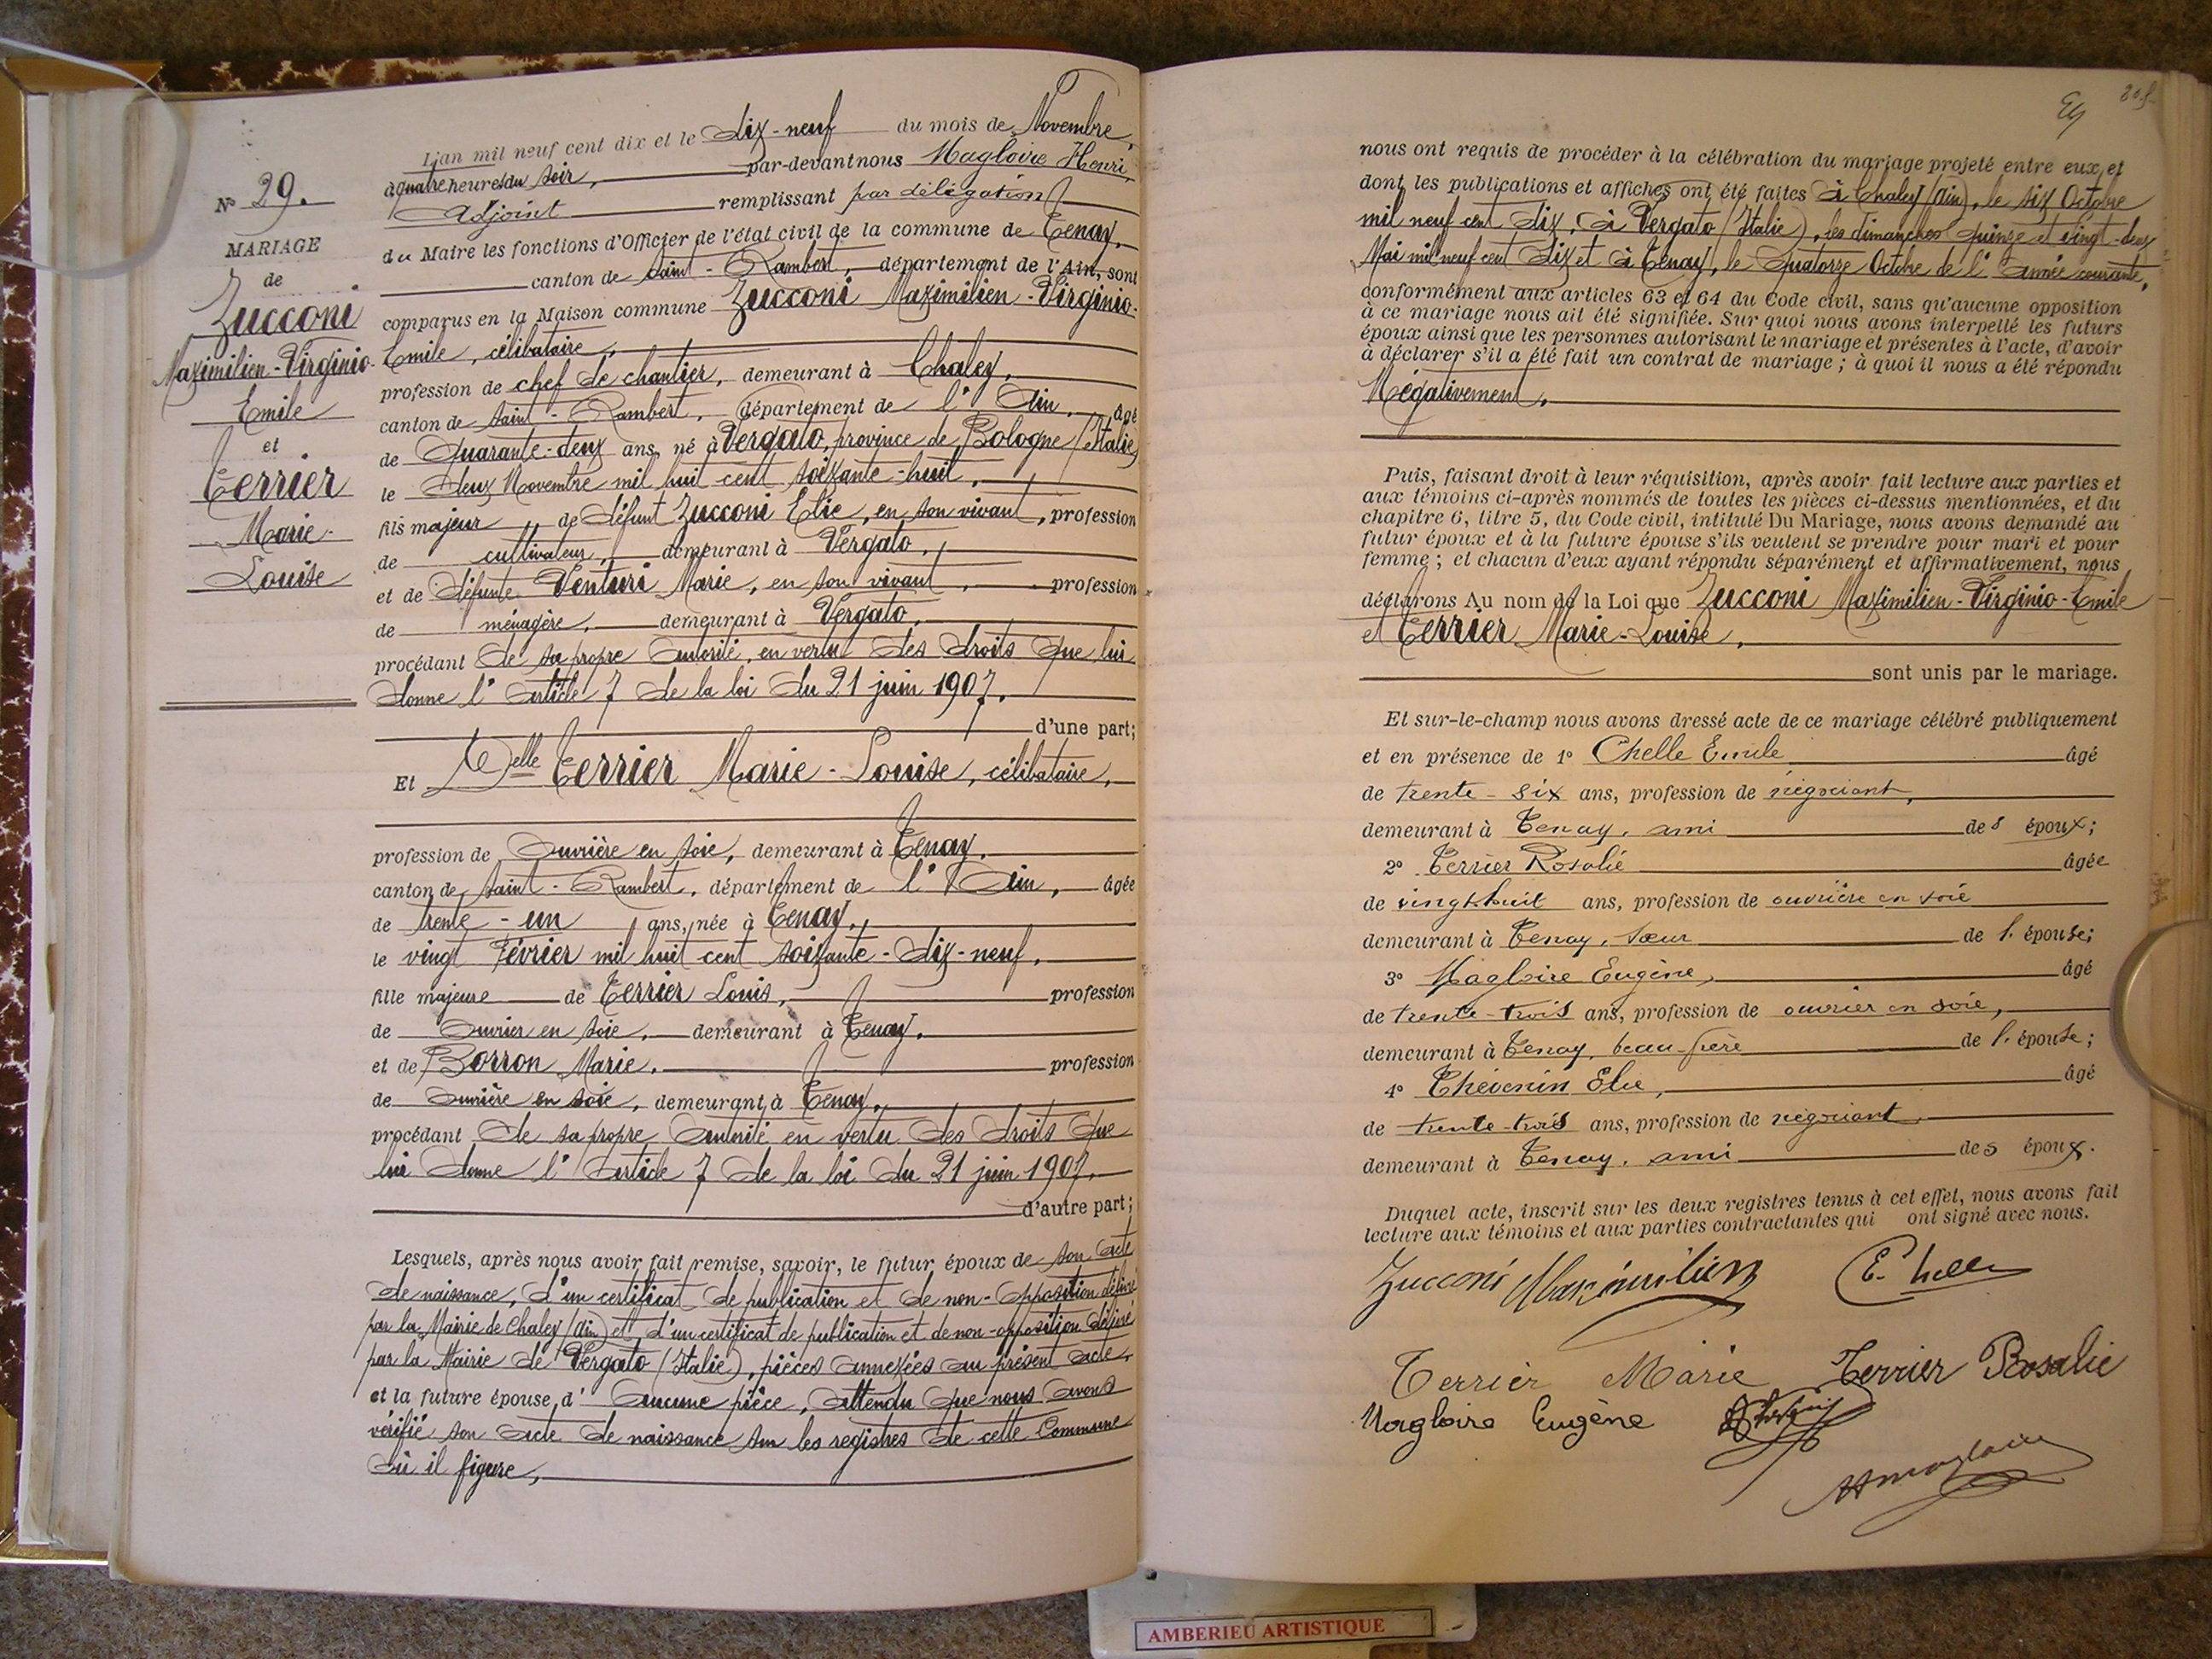 L'an mil neuf cent dix et le dix-neuf du mois de Novembre,
à quatre heures du soir, par-devant nous Magloire Henri,
Adjoint remplissant par délégation
du Maire les fonctions d'Officier de l'état civil de la commune de Tenay,
canton de Saint-Rambert, département de l'Ain, sont
comparus en la Maison commune Zucconi Maximilien-Virginio-
Emile, célibataire,
profession de chef de chantier, demeurant à Chaley,
canton de Saint-Rambert, département de l'Ain, âgé
de quarante-deux ans, né à Vergato, province de Bologne (Italie)
le deux Novembre mil huit cent soixante-huit,
fils majeur de défunt Zucconi Elie, en son vivant, profession
de cultivateur, demeurant à Vergato,
et de défunte Venturi Marie, en son vivant, profession
de ménagère, demeurant à Vergato,
procédant de sa propre autorité, en vertu des droits que lui
donne l'article 7 de la loi du 21 juin 1907.
d'une part;
Et Delle Terrier Marie-Louise, célibataire,
profession de ouvrière en soie, demeurant à Tenay,
canton de Saint-Rambert, département de l'Ain, âgée
de trente-un ans, née à Tenay,
le vingt Février mil huit cent soixante-dix-neuf,
fille majeure de Terrier Louis, profession
de ouvrier en soie, demeurant à Tenay,
et de Borron Marie, profession
de ouvrière en soie, demeurant à Tenay,
procédant de sa propre autorité en vertu des droits que
lui donne l'article 7 de la loi du 21 juin 1907.
d'autre part;
Lesquels, après nous avoir fait remise, savoir, le futur époux de son acte
de naissance, d'un certificat de publication et de non-opposition délivré
par la Mairie de Chaley (Ain) et d'un certificat de publication et de non-opposition délivré
par la Mairie de Vergato (Italie), pièces annexées au présent acte,
et la future épouse, d'aucune pièce, attendu que nous avons
vérifié son acte de naissance sur les registres de cette Commune
où il figure,
No 29.
MARIAGE
de
Zucconi
Maximilien-Virginio-
Emile
et
Terrier
Marie-
Louise
nous ont requis de procéder à la célébration du mariage projeté entre eux, et
dont les publications et affiches ont été faites à Chaley (Ain), le six Octobre
mil neuf cent dix, à Vergato (Italie), les dimanches quinze et vingt-deux
Mai mil neuf cent dix et à Tenay, le quatorze Octobre de l'année courante,
conformément aux articles 63 et 64 du Code civil, sans qu'aucune opposition
à ce mariage nous ait été signifiée. Sur quoi nous avons interpellé les futurs
époux ainsi que les personnes autorisant le mariage et présentes à l'acte, d'avoir
à déclarer s'il a été fait un contrat de mariage; à quoi il nous a été répondu
Négativement,
Puis, faisant droit à leur réquisition, après avoir fait lecture aux parties et
aux témoins ci-après nommés de toutes les pièces ci-dessus mentionnées, et du
chapitre 6, titre 5, du Code civil, intitulé Du Mariage, nous avons demandé au
futur époux et à la future épouse s'ils veulent se prendre pour mari et pour
femme; et chacun d'eux ayant répondu séparément et affirmativement, nous
déclarons Au nom de la Loi que Zucconi Maximilien-Virginio-Emile
et Terrier Marie-Louise,
sont unis par le mariage.
Et sur-le-champ nous avons dressé acte de ce mariage célébré publiquement
et en présence de 1o Chelle Emile âgé
de trente-six ans, profession de négociant,
demeurant à Tenay, ami des époux;
2o Terrier Rosalie âgée
de vingt huit ans, profession de ouvrière en soie
demeurant à Tenay, soeur de l'épouse;
3o Magloire Eugène, âgé
de trente-trois ans, profession de ouvrier en soie,
demeurant à Tenay, beau-frère de l'épouse;
4o Thévenin Elie, âgé
de trente-trois ans, profession de négociant
demeurant à Tenay, ami des époux.
Duquel acte, inscrit sur les deux registres tenus à cet effet, nous avons fait
lecture aux témoins et aux parties contractantes qui ont signé avec nous.
Zucconi Maximilien E. Chelle
Terrier Marie Terrier Rosalie
Magloire Eugène
HMagloire
AMBERIEU ARTISTIQUE